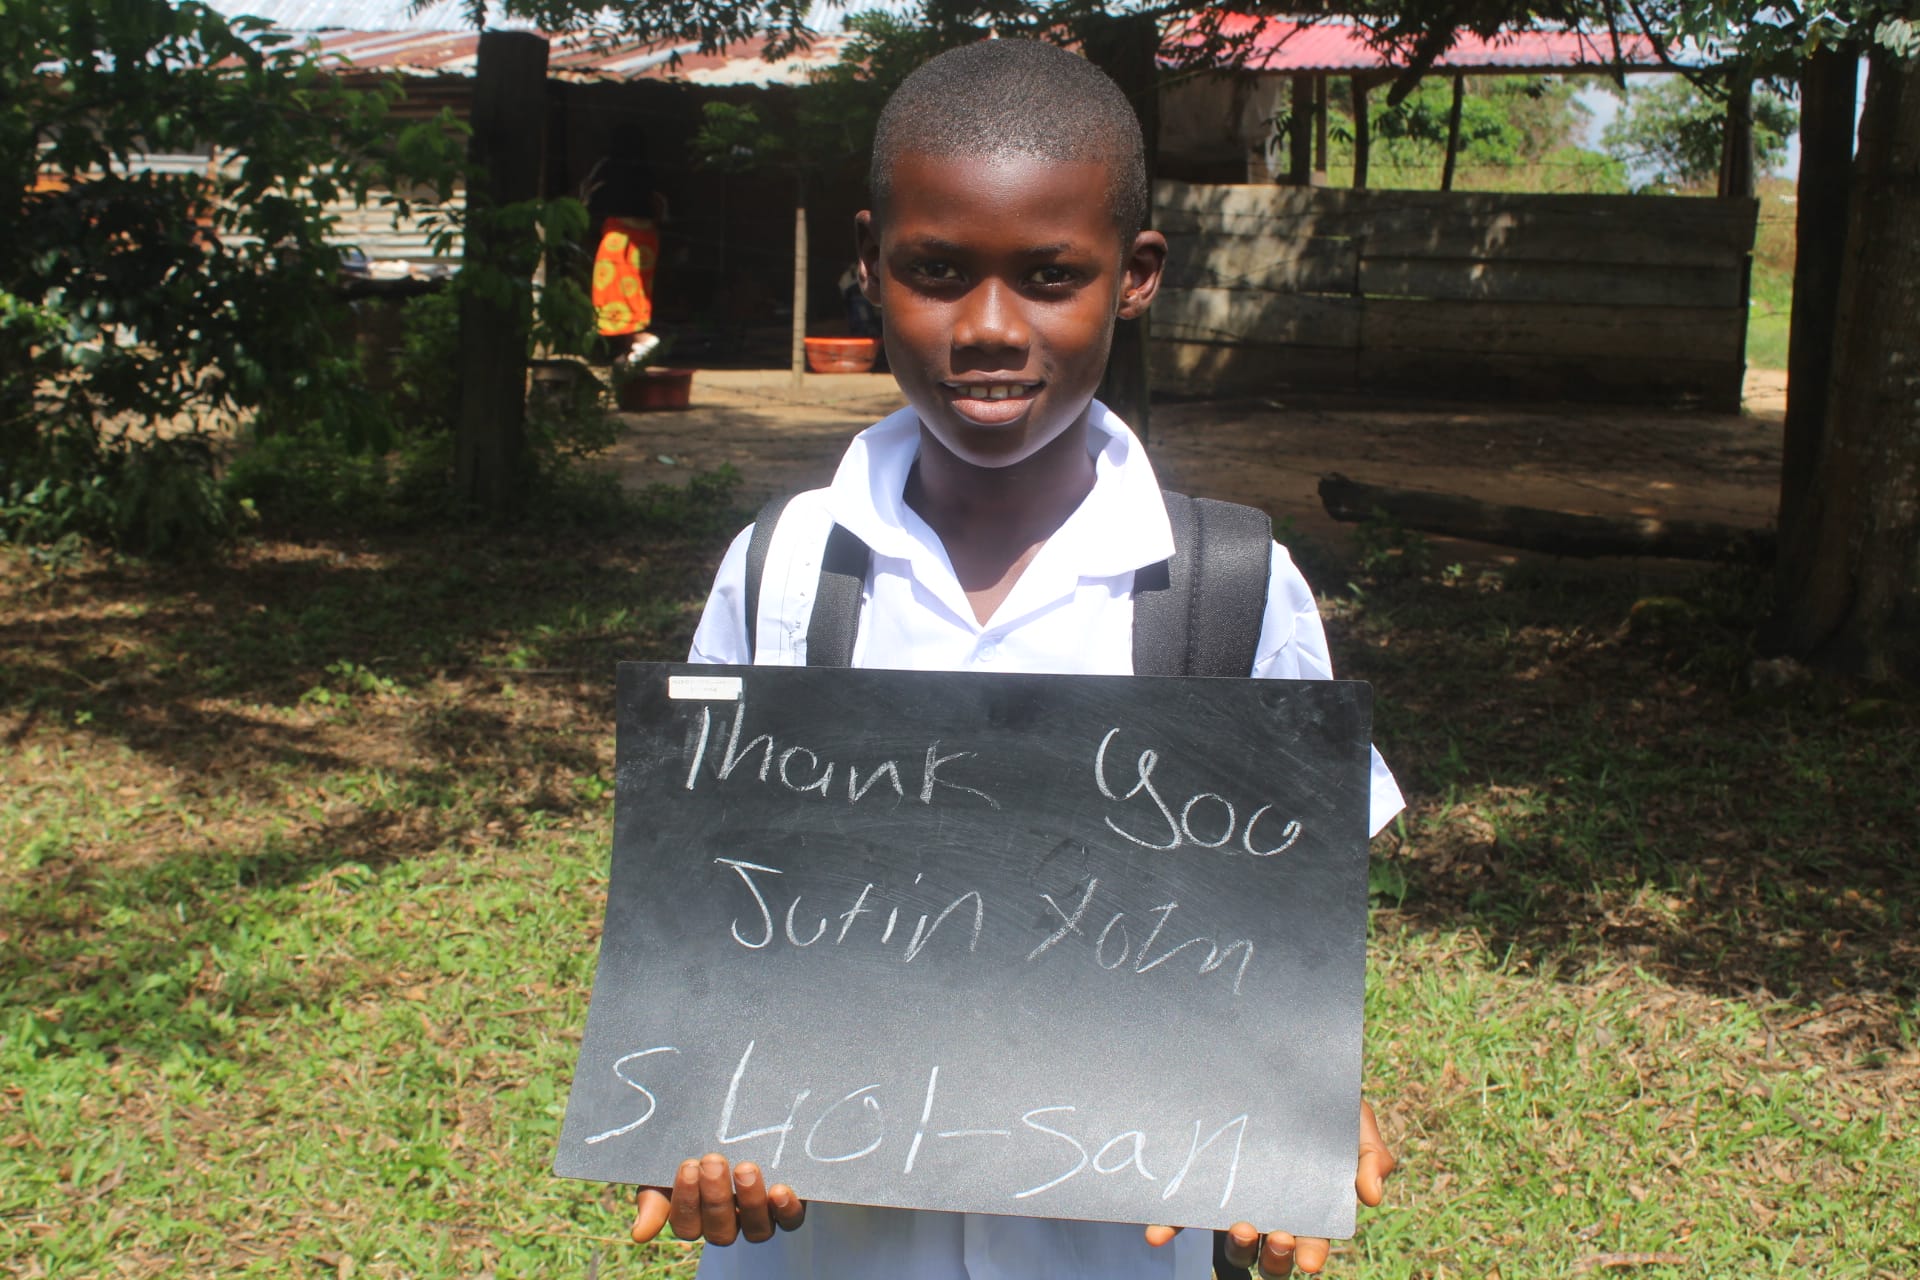 Thank You
Jutin Yoim
S 4401-San